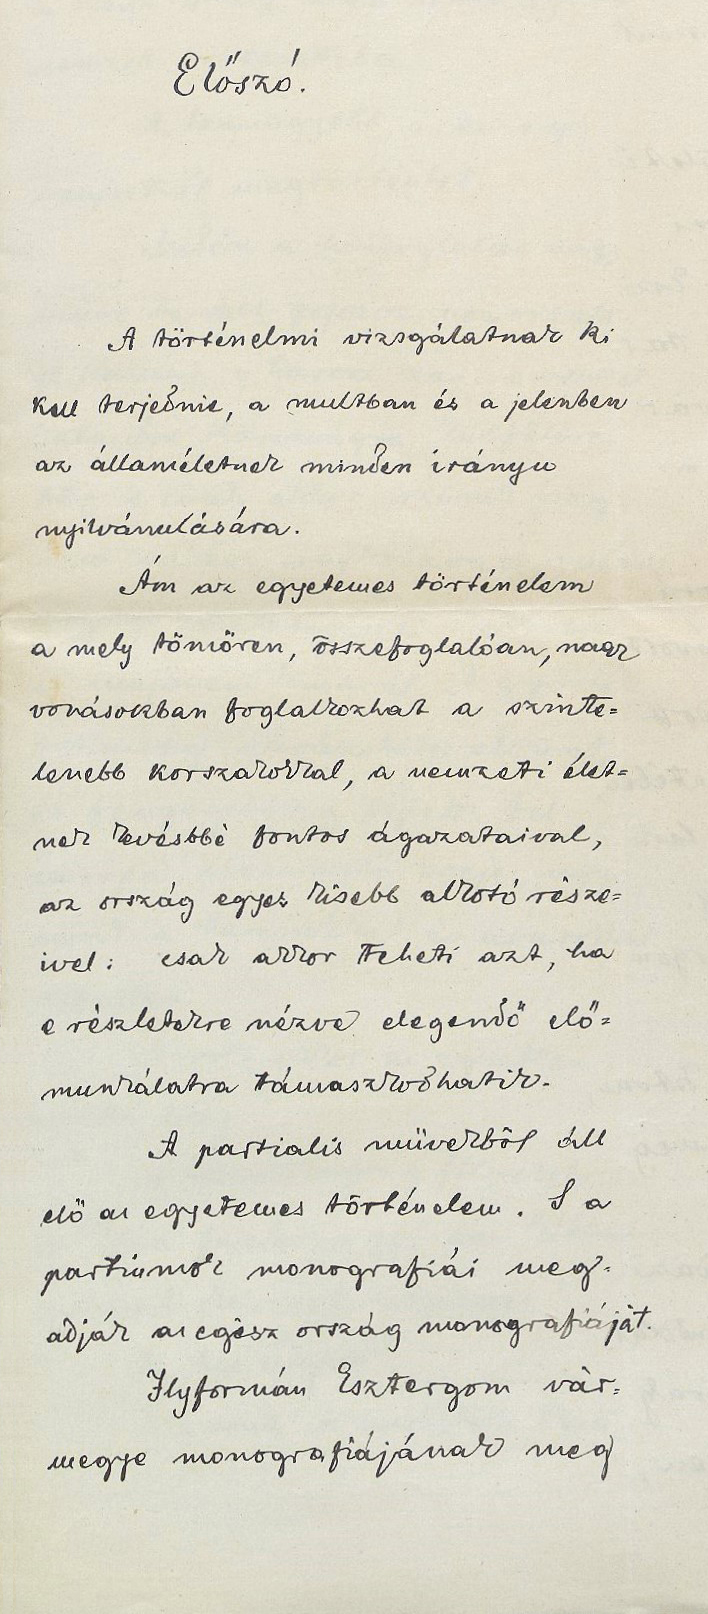 Előszó.
A történelmi vizsgálatnak ki
kell terjednie, a multban és a jelenben
az államéletnek minden irányu
nyilvánulására.
Ám az egyetemes történelem
a mely tömören, összefoglalóan, nagy
vonásokban foglalkozhat a szinte-
lenebb korszakokkal, a nemzeti élet-
nek kevésbbé fontos ágazataival,
az ország egyes kisebb alkotó része-
ivel: csak akkor teheti azt, ha
e részletekre nézve elegendő elő-
munkálatra támaszkodhatik.
A partialis müvekből áll
elő az egyetemes történelem. S a
partiumok monografiái meg-
adják az egész ország monografiáját.
Ilyformán Esztergom vár-
megye monografiájának meg